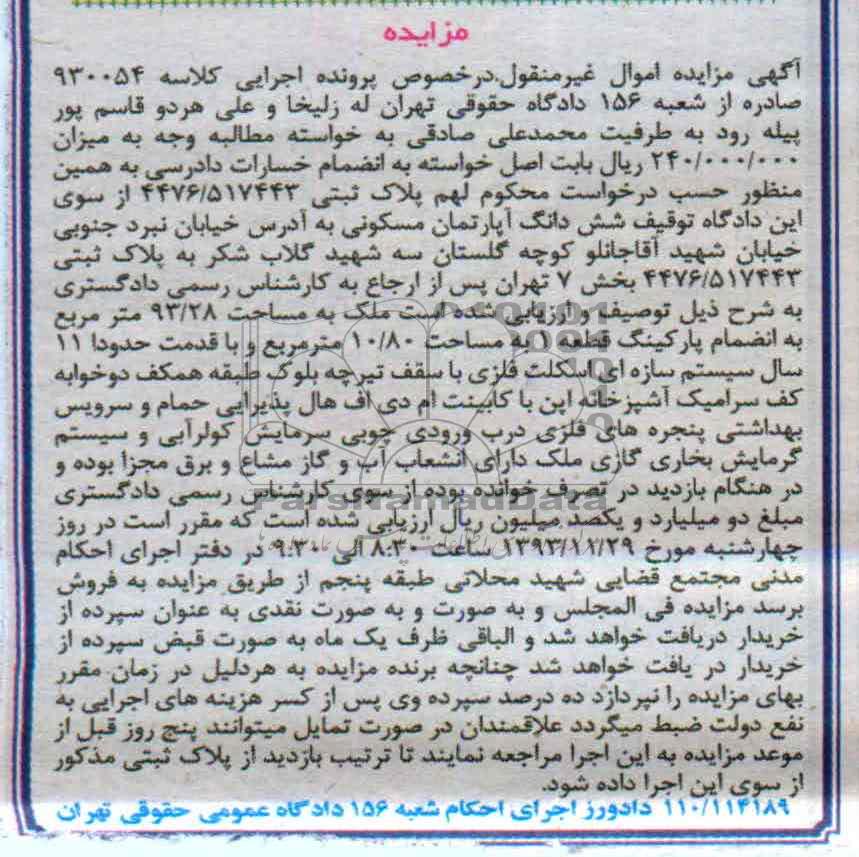 مزایده
آگهی مزایده اموال غیرمنقول.درخصوص پرونده اجرایی کلاسه ۹۳۰۰۵۴
صادره از شعبه ۱۵۶ دادگاه حقوقی تهران له زلیخا و علی هردو قاسم پور
پیله رود به طرفیت محمدعلی صادقی به خواسته مطالبه وجه به میزان
۲۴۰/۰۰۰/۰۰۰ ریال بابت اصل خواسته به انضمام خسارات دادرسی به همین
منظور حسب درخواست محکوم لهم پلاک ثبتی ۴۴۷۶/۵۱۷۴۴۳ از سوی
این دادگاه توقیف شش دانگ آپارتمان مسکونی به آدرس خیابان نبرد جنوبی
خیابان شهید آقاجانلو کوچه گلستان سه شهید گلاب شکر به پلاک ثبتی
۴۴۷۶/۵۱۷۴۴۳ بخش ۷ تهران پس از ارجاع به کارشناس رسمی دادگستری
به شرح ذیل توصیف و ارزیابی شده است ملک به مساحت ۹۳/۲۸ متر مربع
به انضمام پارکینگ قطعه ۱ به مساحت ۱۰/۸۰ مترمربع و با قدمت حدودا ۱۱
سال سیستم سازه ای اسکلت فلزی با سقف تیرچه بلوک طبقه همکف دوخوابه
کف سرامیک آشپزخانه اپن با کابینت ام دی اف هال پذیرایی حمام و سرویس
بهداشتی پنجره های فلزی درب ورودی چوبی سرمایش کولرآبی و سیستم
گرمایش بخاری گازی ملک دارای انشعاب آب و گاز مشاع و برق مجزا بوده و
در هنگام بازدید در تصرف خوانده بوده از سوی کارشناس رسمی دادگستری
مبلغ دو میلیارد و یکصد میلیون ریال ارزیابی شده است که مقرر است در روز
چهارشنبه مورخ ۱۳۹۳/۱۱/۲۹ ساعت ۸:۳۰ الی ۹:۳۰ در دفتر اجرای احکام
مدنی مجتمع قضایی شهید محلاتی طبقه پنجم از طریق مزایده به فروش
برسد مزایده فی المجلس و به صورت و به صورت نقدی به عنوان سپرده از
خریدار دریافت خواهد شد و الباقی ظرف یک ماه به صورت قبض سپرده از
خریدار در یافت خواهد شد چنانچه برنده مزایده به هردلیل در زمان مقرر
بهای مزایده را نپردازد ده درصد سپرده وی پس از کسر هزینه های اجرایی به
نفع دولت ضبط میگردد علاقمندان در صورت تمایل میتوانند پنج روز قبل از
موعد مزایده به این اجرا مراجعه نمایند تا ترتیب بازدید از پلاک ثبتی مذکور
از سوی این اجرا داده شود.
۱۱۰/۱۱۴۱۸۹ دادورز اجرای احکام شعبه ۱۵۶ دادگاه عمومی حقوقی تهران
ParsNamadData